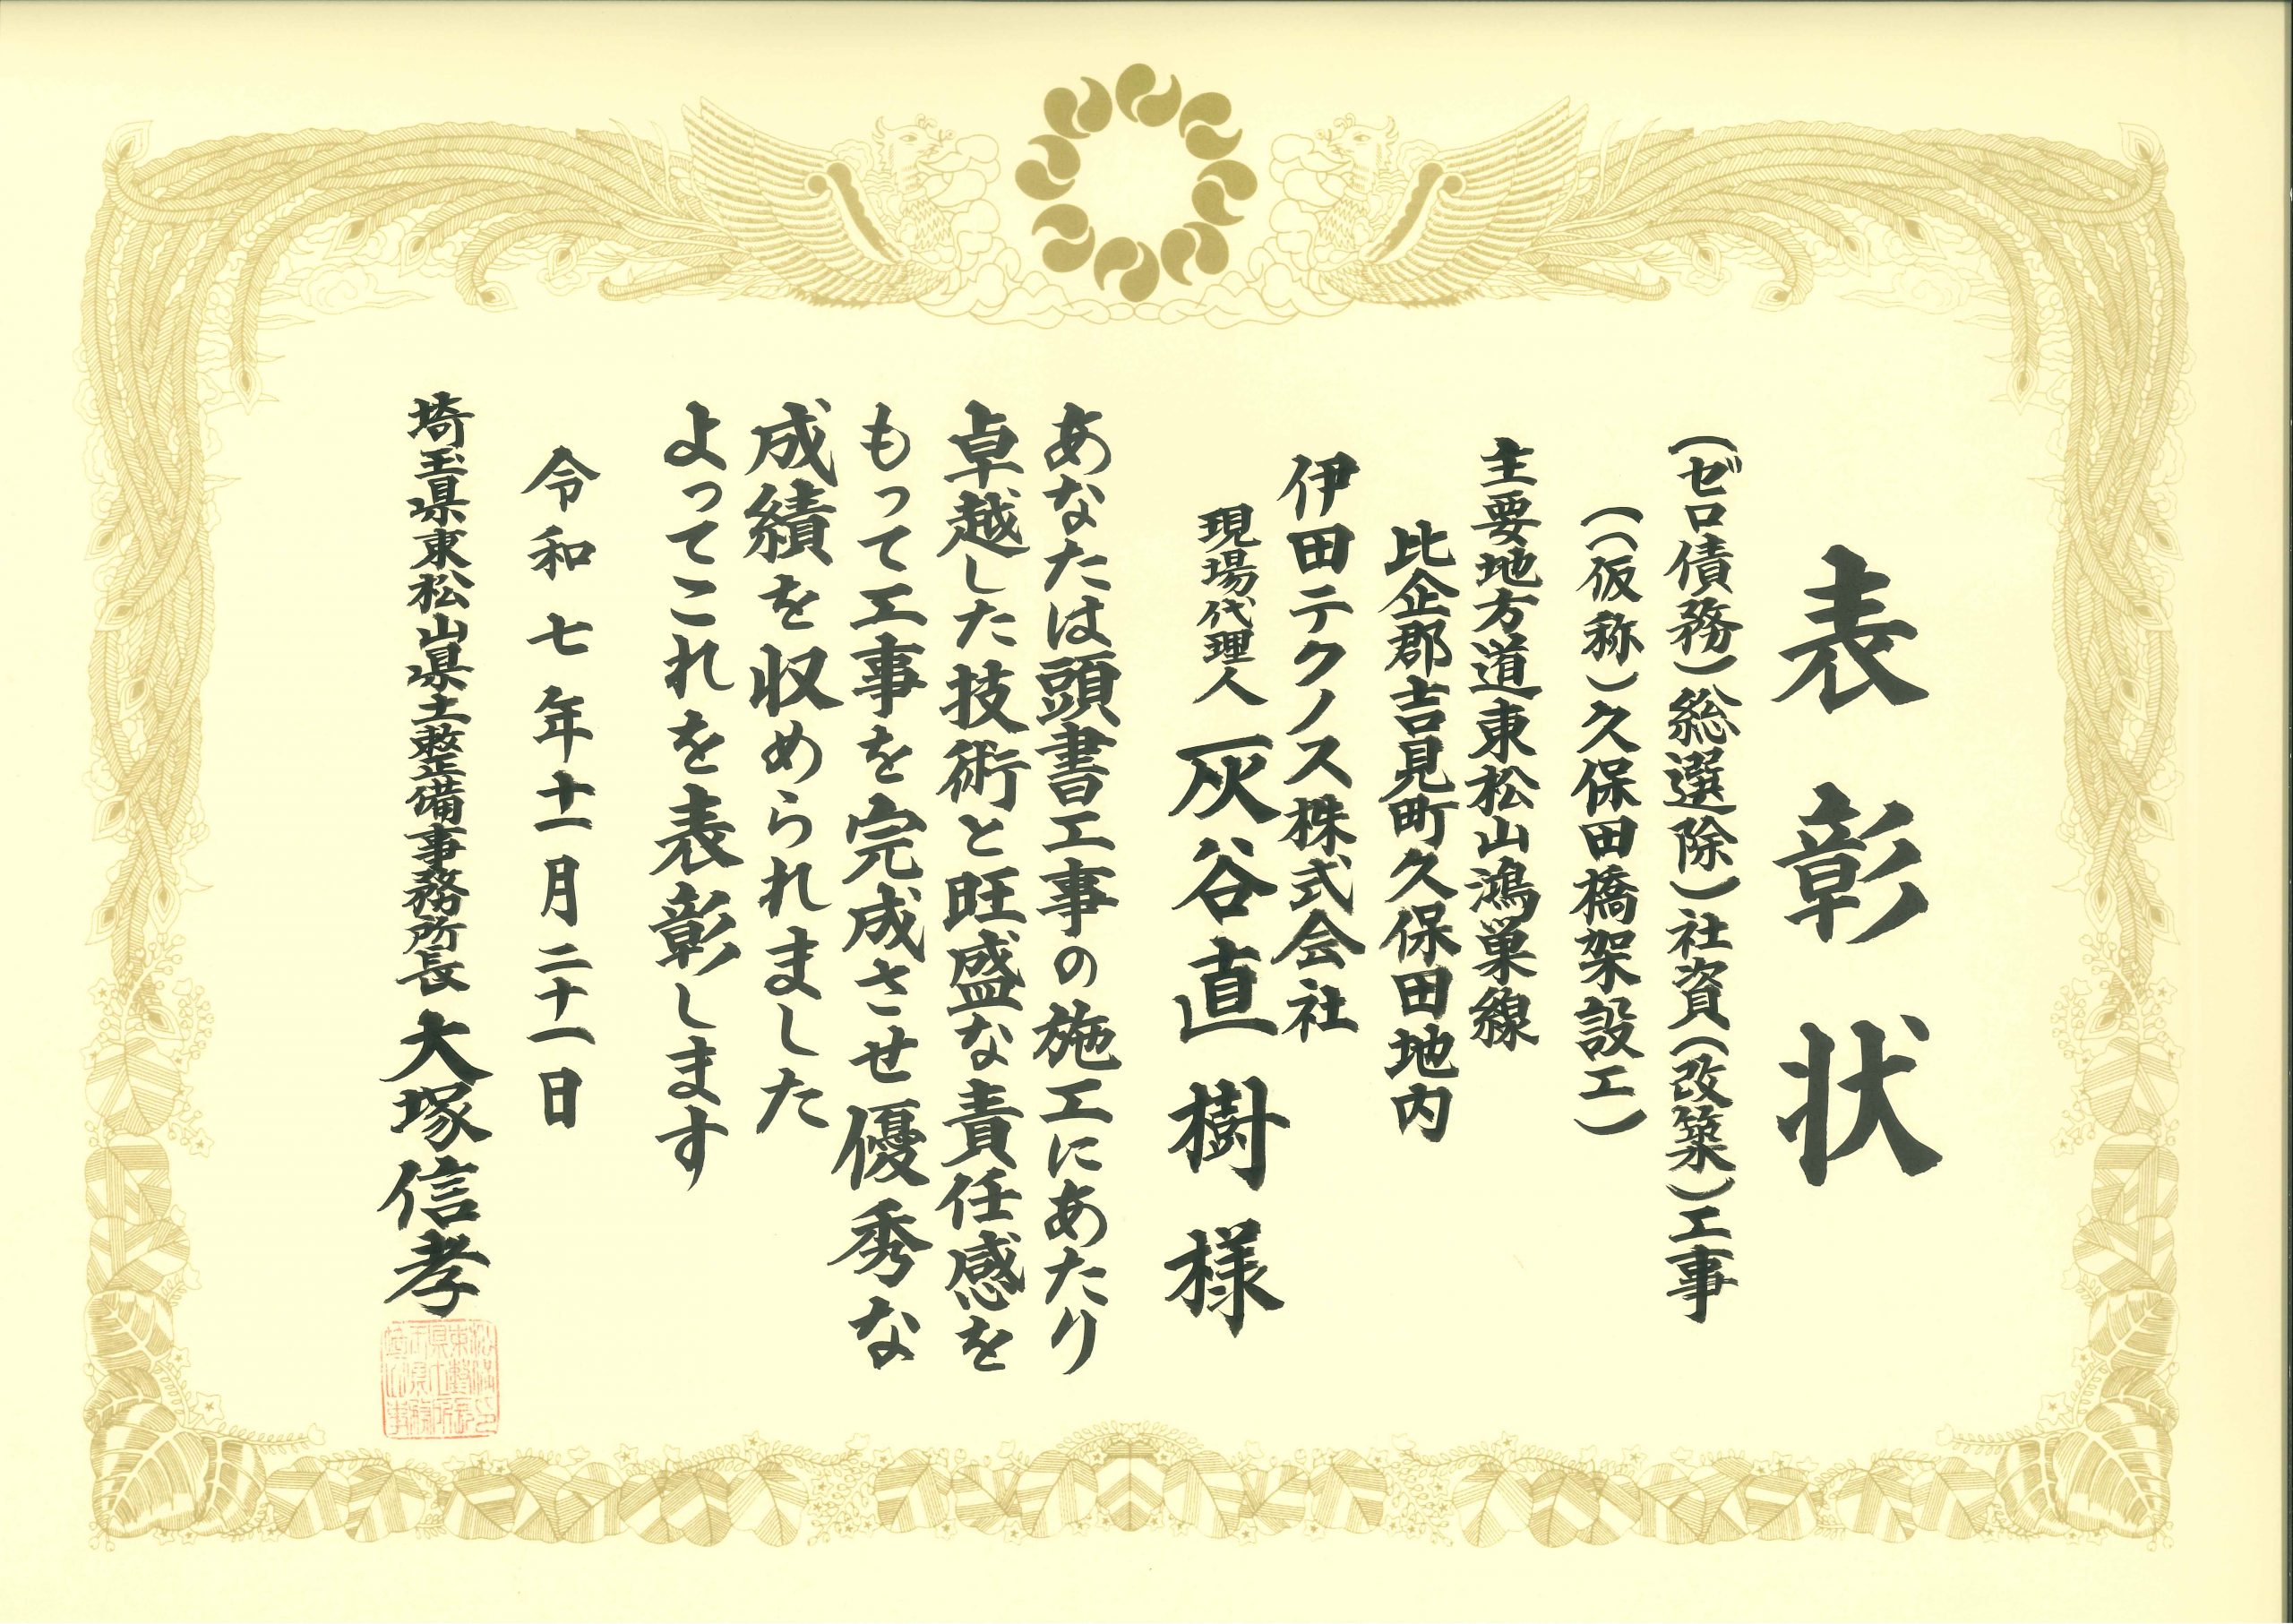 表彰状
(ゼロ債務)総選除)社資(改築)工事
((仮称)久保田橋架設工)
主要地方道東松山鴻巣線
比企郡吉見町久保田地内
伊田テクノス株式会社
現場代理人 灰谷直樹様
あなたは頭書工事の施工にあたり
卓越した技術と旺盛な責任感を
もって工事を完成させ優秀な
成績を収められました
よってこれを表彰します
令和七年十一月二十一日
埼玉県東松山県土整備事務所長 大塚信孝